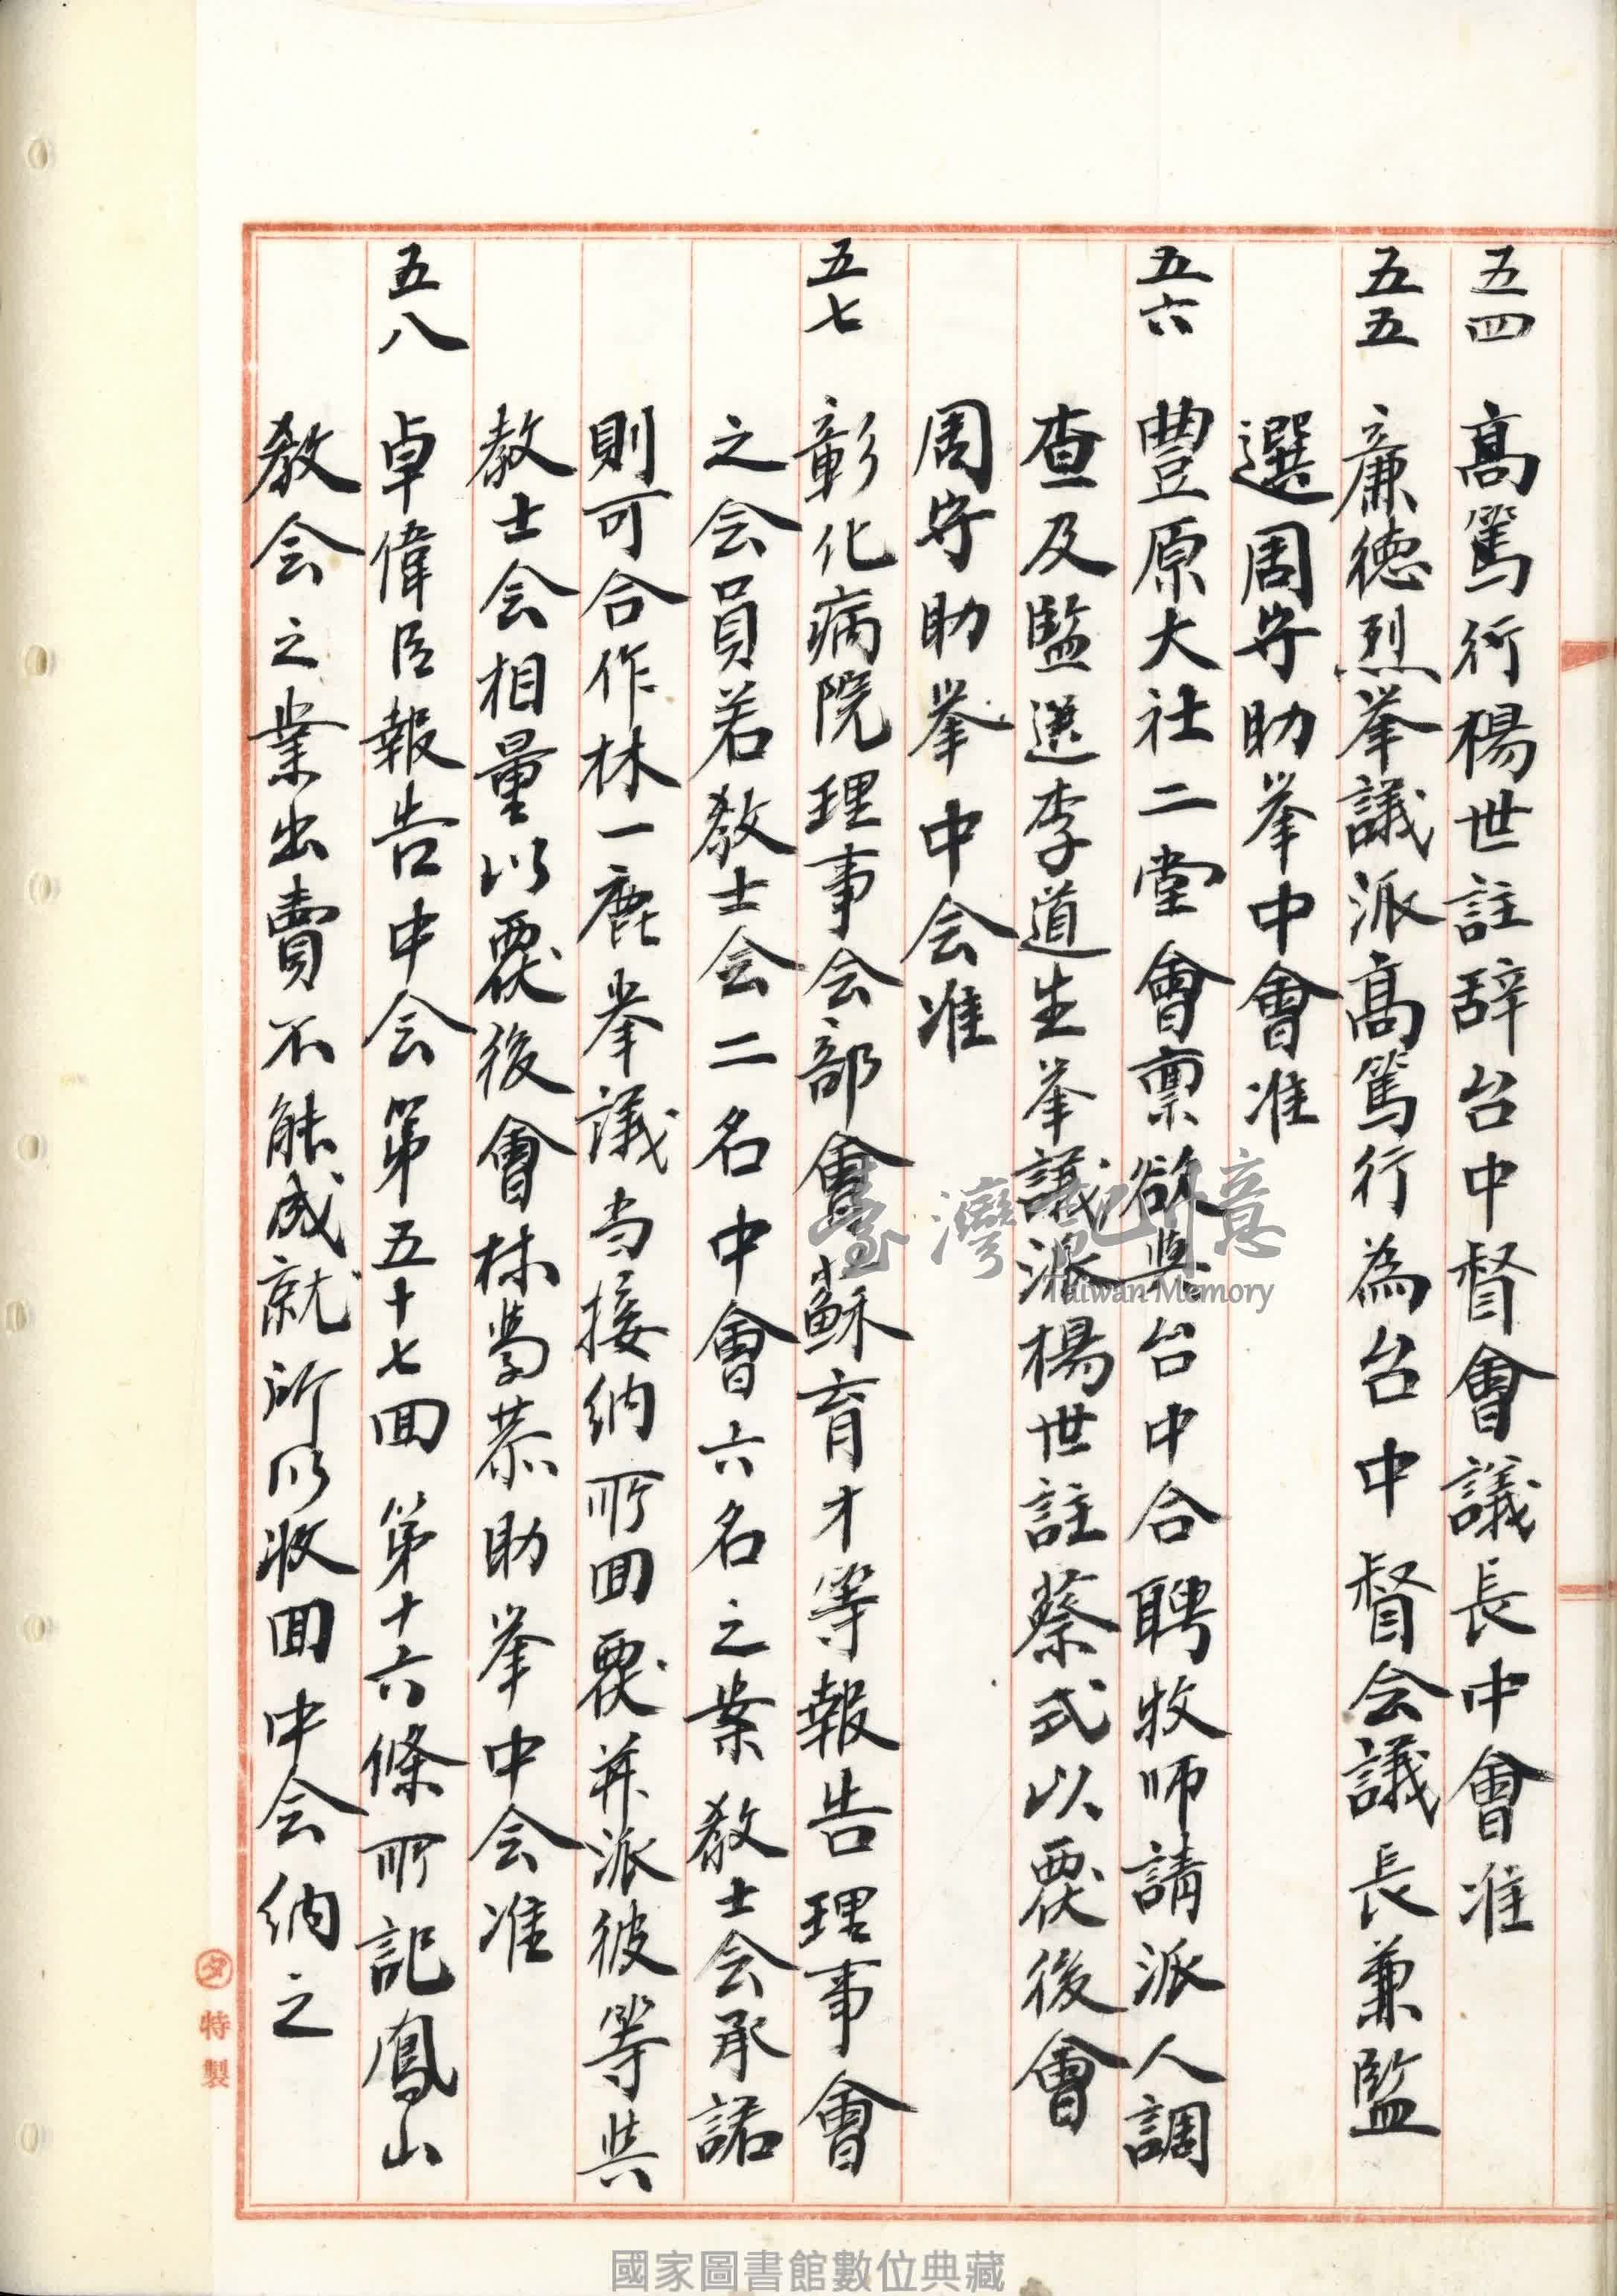 五四 高篤行楊世註辞台中督會議長中會准
五五 廉德烈挙議派高篤行為台中督会議長兼監
選周步助挙中會准
五六 豐原大社二堂會禀欲與台中合聘牧師請派人調
查及監選李道生挙議派楊世註蔡式以覆後會
周步助挙中会准
五七 彰化病院理事会部會蘇育才等報告理事會
之会員若教士会二名中會六名之案教士会承諾
則可合作林一鹿挙議当接納所回覆并派彼等與
教士会相量以覆後會林學恭助挙中会准
五八 卓偉臣報告中会第五十七回第十六條所記鳳山
教会之業出賣不能成就所以收回中会納之
臺灣記憶
Taiwan Memory
特製
國家圖書館數位典藏